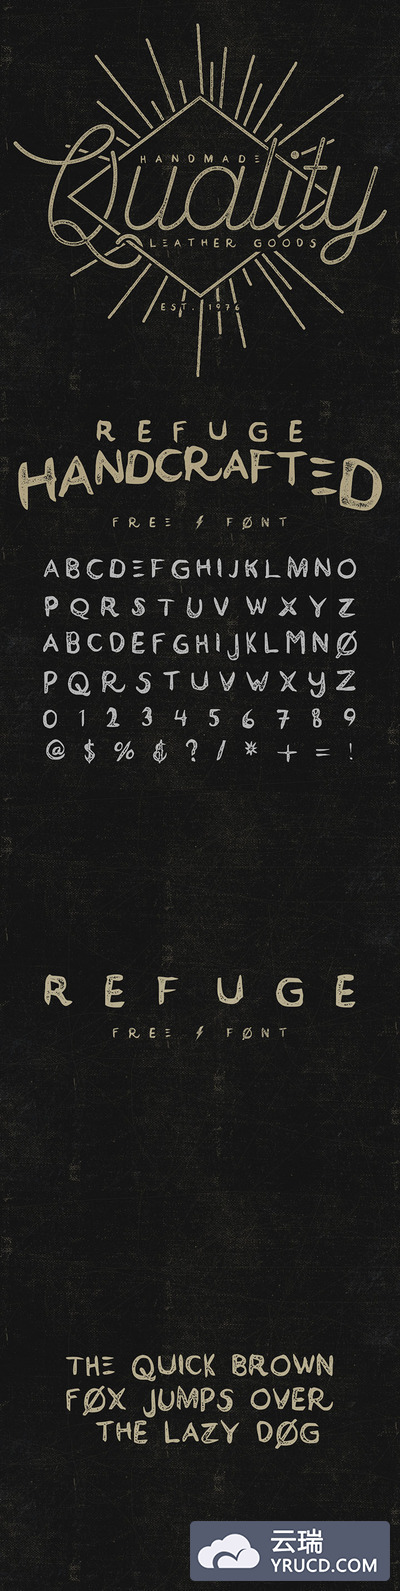 HANDMADE
Quality
LEATHER GOODS
EST. 1976
REFUGE
HANDCRAFTED
FREE FØNT
ABCDEFGHIJKLMNO
PQRSTUVWXYZ
ABCDEFGHIJKLMNØ
PQRSTUVWXYZ
0 1 2 3 4 5 6 7 8 9
@ $ % & ? / * + = !
REFUGE
FREE FØNT
THE QUICK BROWN
FØX JUMPS OVER
THE LAZY DØG
云瑞
YRUCD.COM